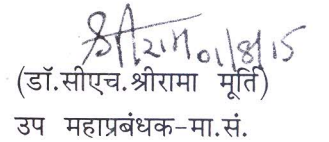 श्रीराम 01/8/15
(डॉ.सीएच.श्रीरामा मूर्ति)
उप महाप्रबंधक-मा.सं.